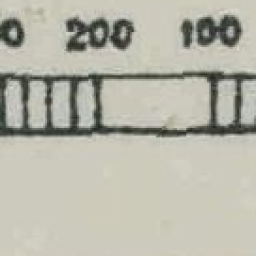 200 100